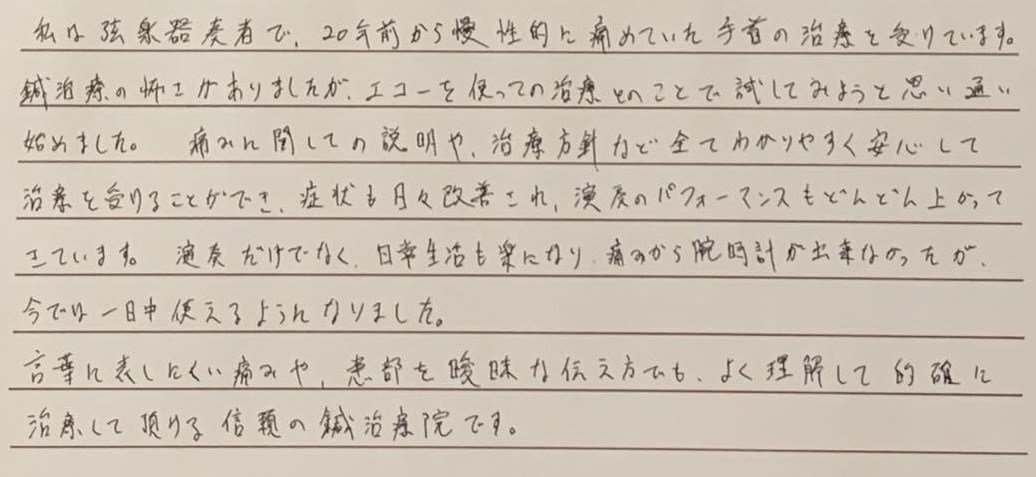 私は弦楽器奏者で、20年前から慢性的に痛めていた手首の治療を受けています。
鍼治療の怖さがありましたが、エコーを使っての治療とのことで試してみようと思い通い
始めました。 痛みに関しての説明や、治療方針など全てわかりやすく安心して
治療を受けることができ、症状も月々改善され、演奏のパフォーマンスもどんどん上がって
きています。 演奏だけでなく、日常生活も楽になり、痛みから腕時計が出来なかったが、
今では一日中使えるようになりました。
言葉に表しにくい痛みや、患部を曖昧な伝え方でも、よく理解して的確に
治療して頂ける信頼の鍼治療院です。